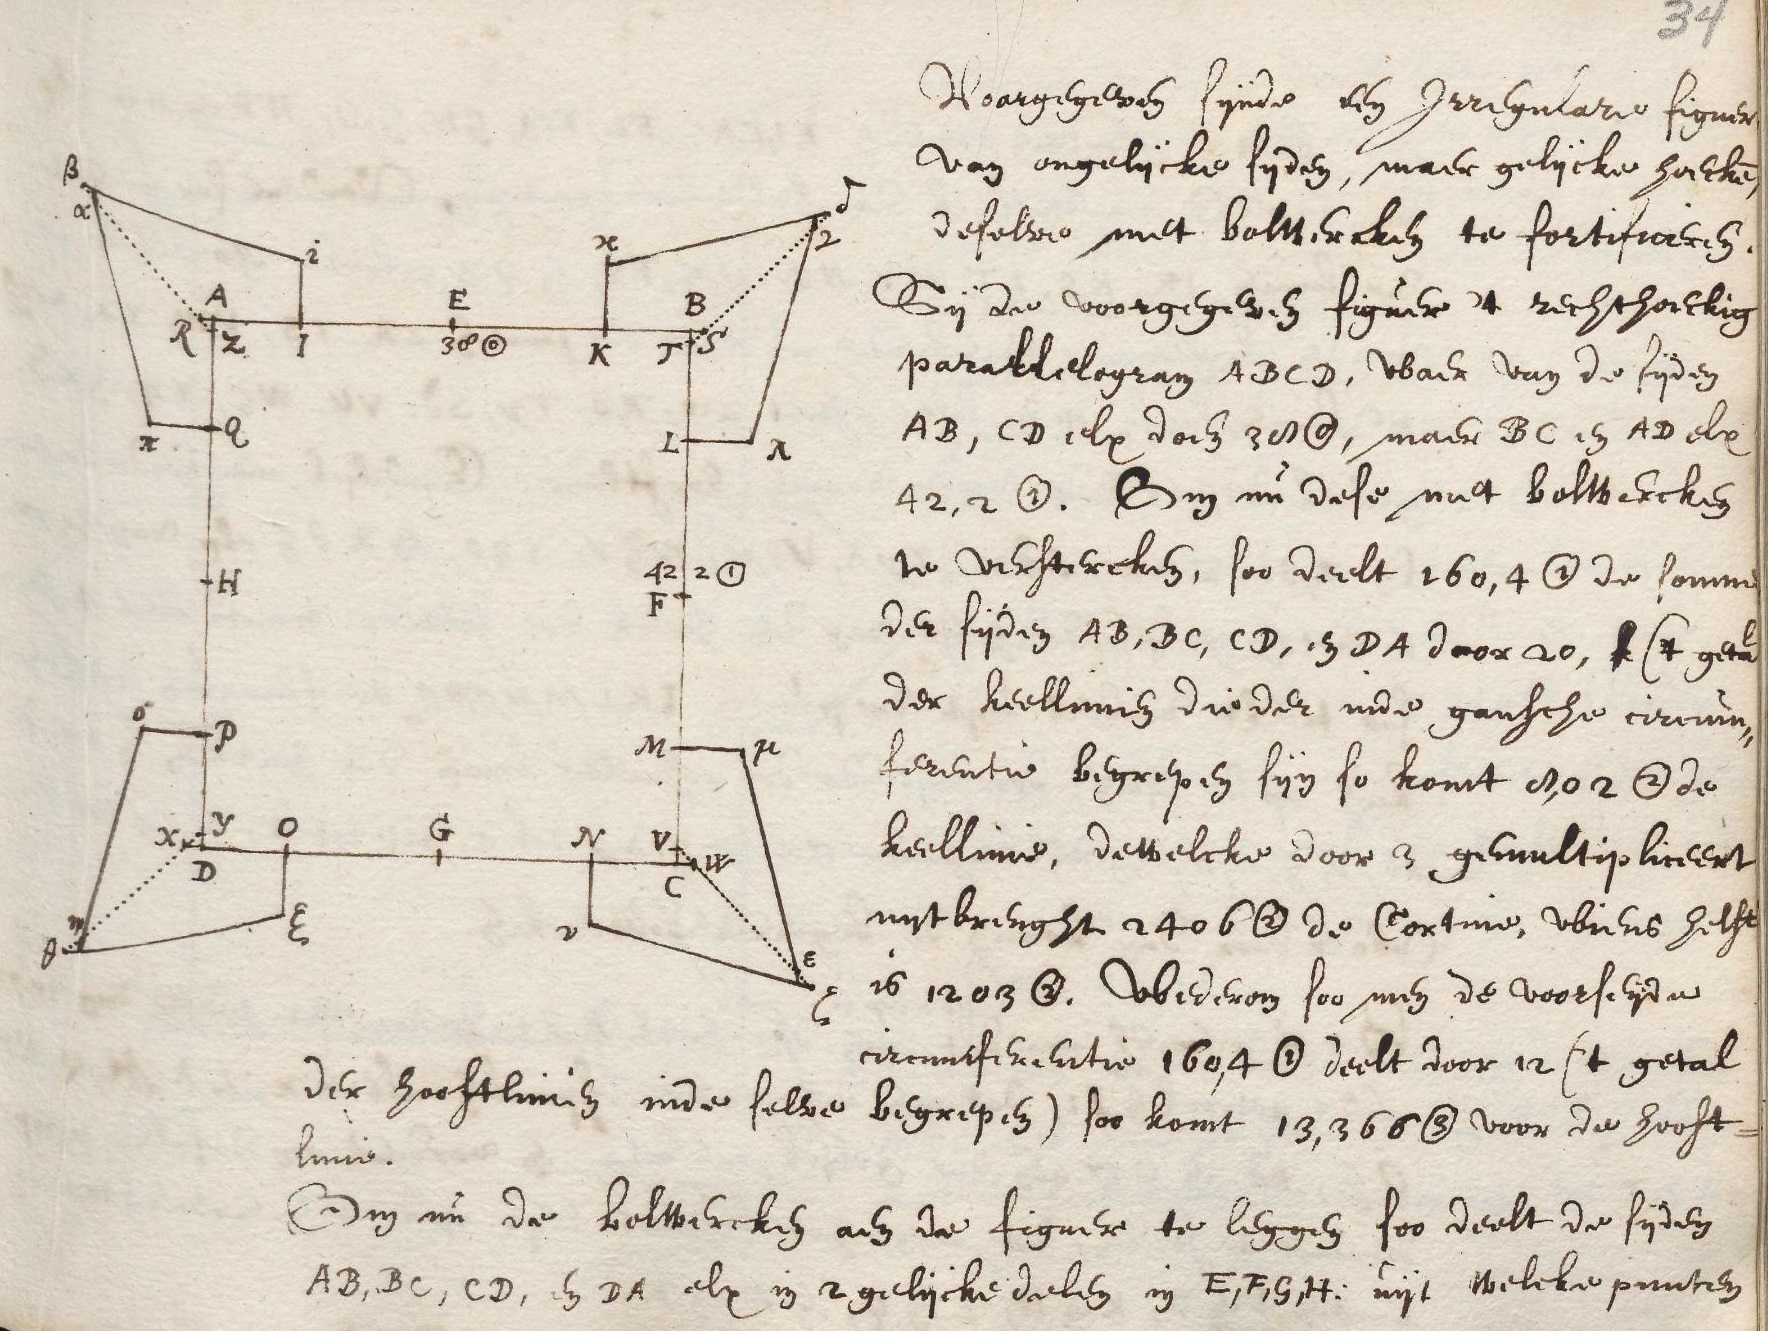 34
Voorgegeven sijnde een Irregulare figuer
van ongelijcke sijden, maer gelijcke hoecken,
deselve met bolwercken te fortificeren.
Sij de voorgegeven figuer 't rechthoeckig
parallelogram ABCD, waer van de sijden
AB, CD elx doen 38⓪, maer BC en AD elx
42,2①. Om nu dese met bolwercken
te verstercken, soo deelt 160,4① de somme
der sijden AB, BC, CD, en DA door 20, ('t getal
der keellinien die der inde gansche circum„
ferentie begrepen sijn so komt 8,02② de
keellinie, dewelcke door 3 gemultipliceert
uytbrenght 2406② de Cortine, wiens helft
is 1203②. Wederom soo men de voorseyde
circumferentie 160,4① deelt door 12 ('t getal
der hooftlinien inde selve begrepen) soo komt 13,366③ voor de hooft=
linie.
Om nu de bolwercken aen de figuer te leggen soo deelt de sijden
AB, BC, CD, en DA elx in 2 gelijcke delen in E,F,G,H: uijt welcke puncten
β
α
i
κ
δ
γ
A
E
B
R
Z
I
38⓪
K
T
S
π
Q
L
λ
H
42 2①
F
σ
P
M
μ
X
Y
O
G
N
V
W
D
C
η
θ
ξ
ν
ε
ζ